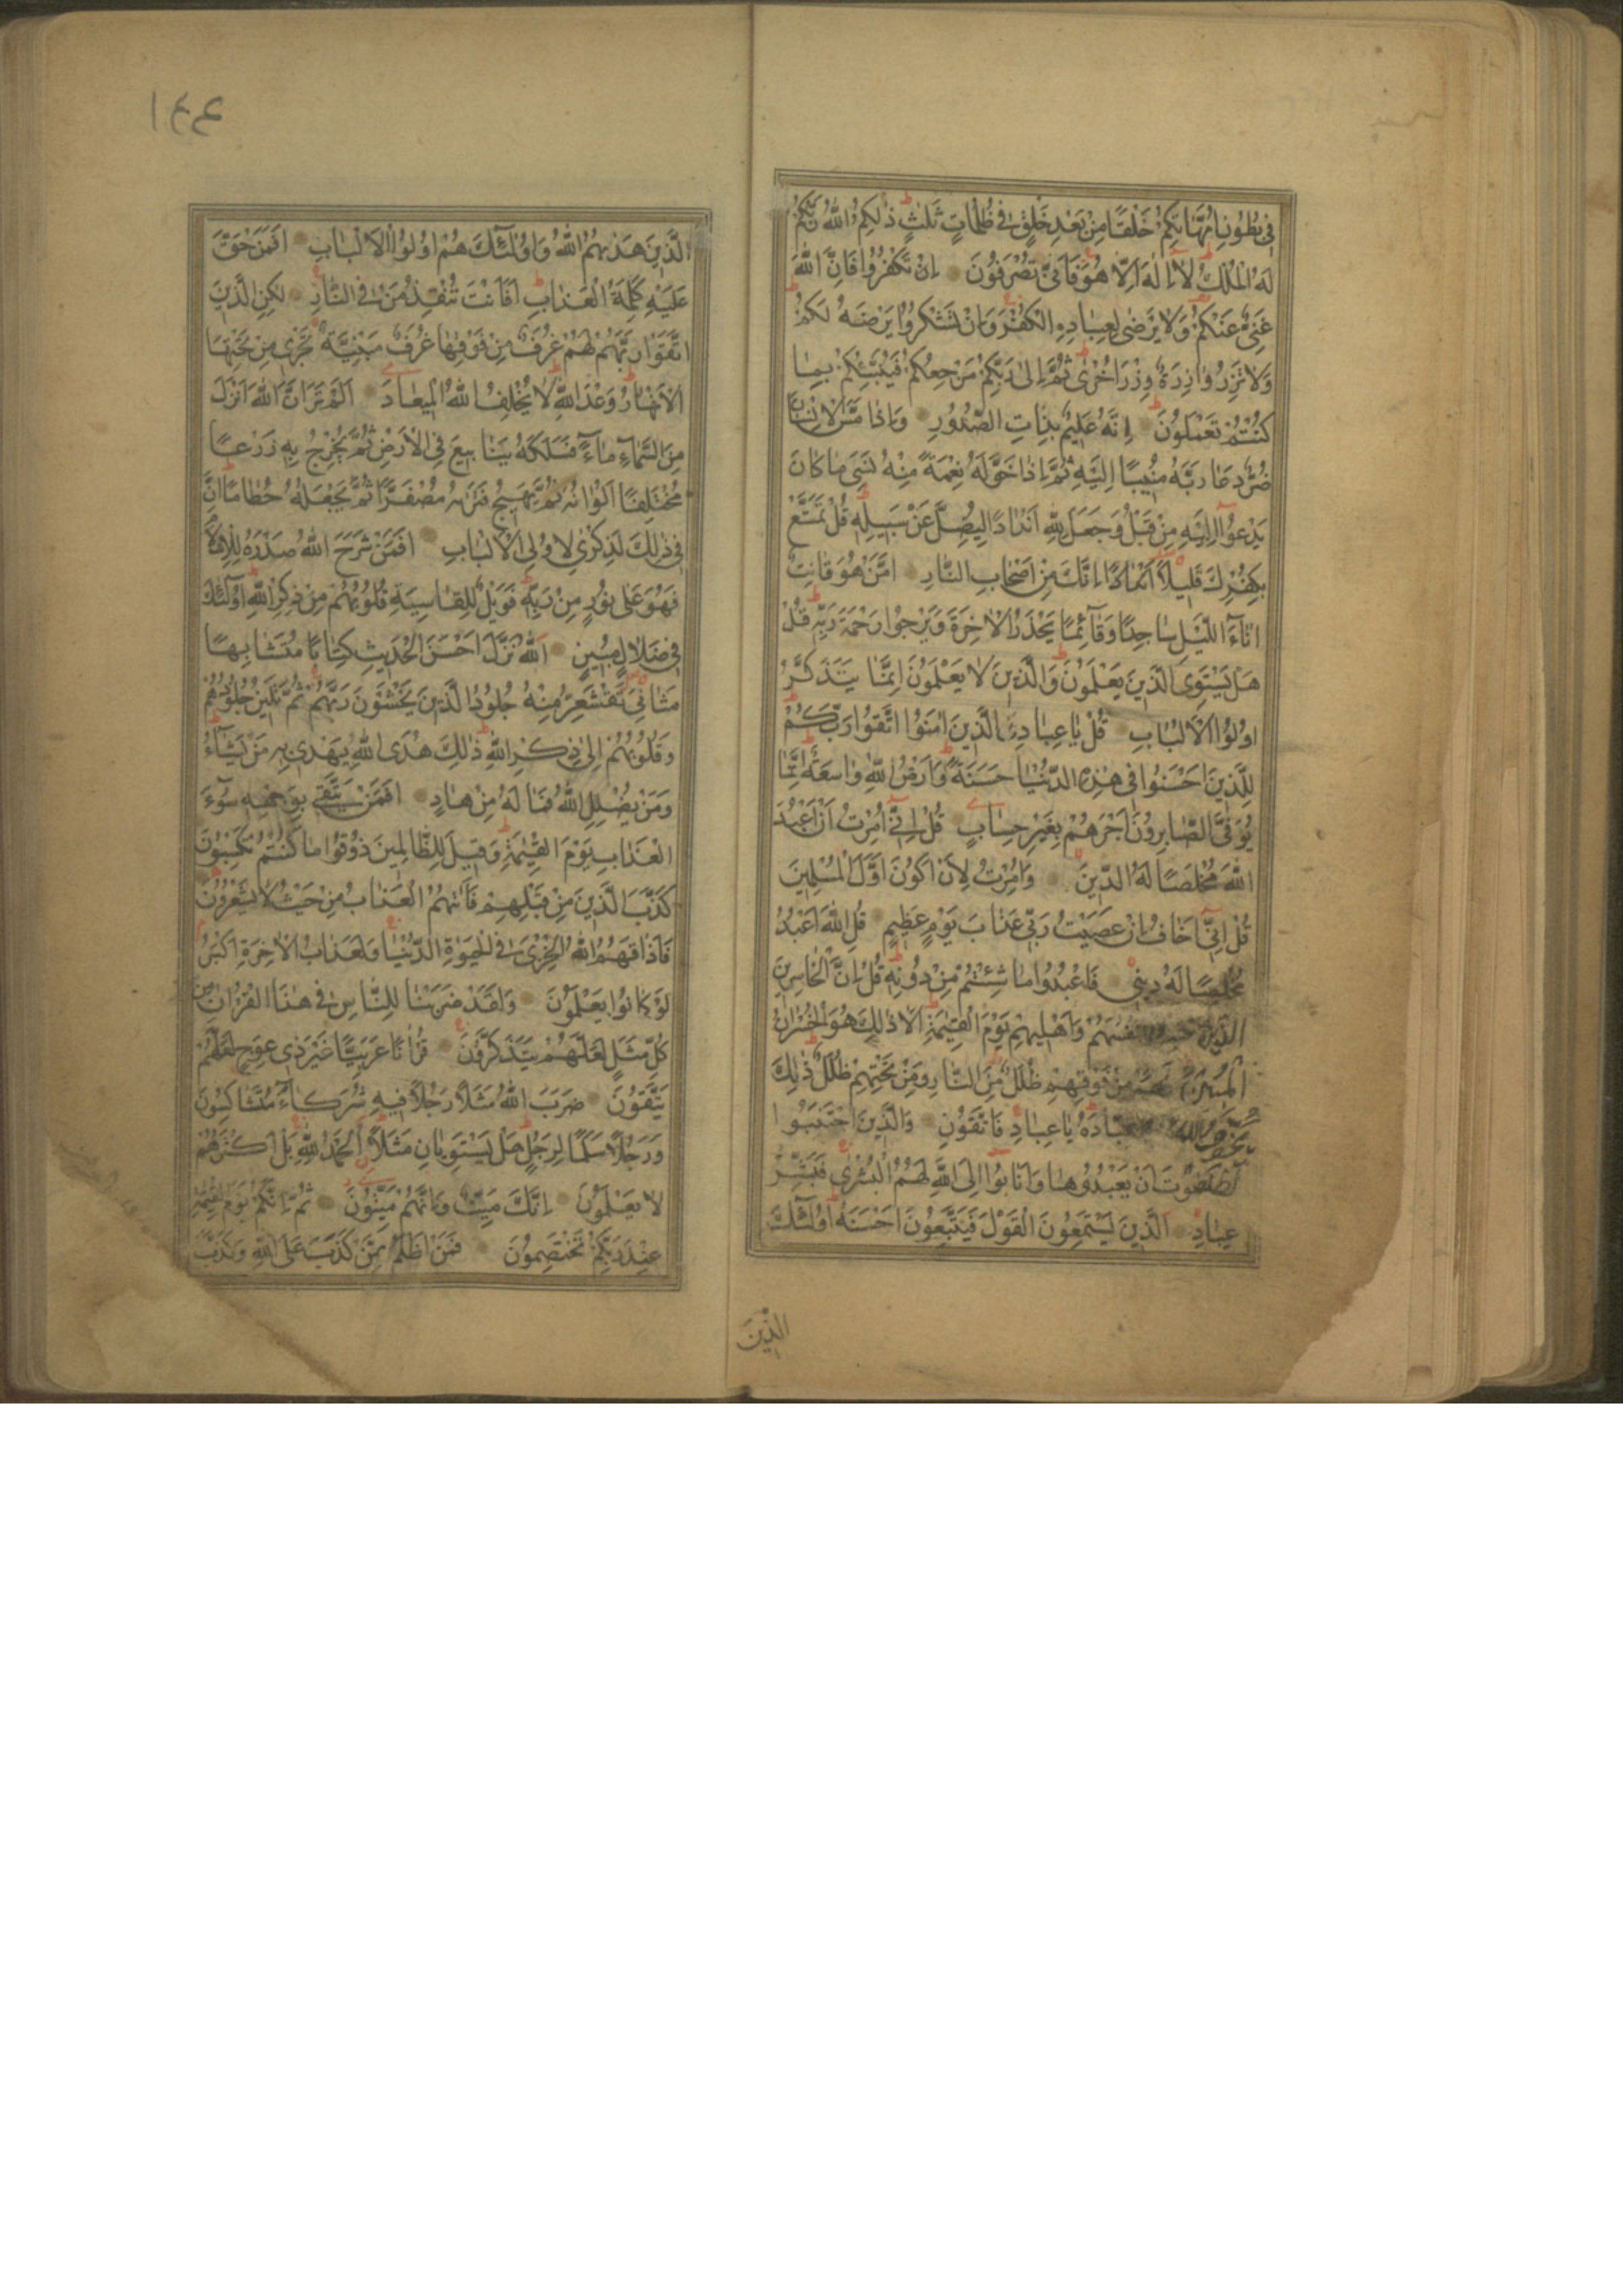 فِي بُطُونِ اُمَّهَاتِكُمْ خَلْقًا مِنْ بَعْدِ خَلْقٍ فِي ظُلُمَاتٍ ثَلٰثٍ ذٰلِكُمُ اللّٰهُ رَبُّكُمْ
لَهُ الْمُلْكُ لَا اِلٰهَ اِلَّا هُوَ فَاَنّٰى تُصْرَفُونَ اِنْ تَكْفُرُوا فَاِنَّ اللّٰهَ
غَنِيٌّ عَنْكُمْ وَلَا يَرْضٰى لِعِبَادِهِ الْكُفْرَ وَاِنْ تَشْكُرُوا يَرْضَهُ لَكُمْ
وَلَا تَزِرُ وَازِرَةٌ وِزْرَ اُخْرٰى ثُمَّ اِلٰى رَبِّكُمْ مَرْجِعُكُمْ فَيُنَبِّئُكُمْ بِمَا
كُنْتُمْ تَعْمَلُونَ اِنَّهُ عَلِيمٌ بِذَاتِ الصُّدُورِ وَاِذَا مَسَّ الْاِنْسَانَ
ضُرٌّ دَعَا رَبَّهُ مُنِيبًا اِلَيْهِ ثُمَّ اِذَا خَوَّلَهُ نِعْمَةً مِنْهُ نَسِيَ مَا كَانَ
يَدْعُوا اِلَيْهِ مِنْ قَبْلُ وَجَعَلَ لِلّٰهِ اَنْدَادًا لِيُضِلَّ عَنْ سَبِيلِهِ قُلْ تَمَتَّعْ
بِكُفْرِكَ قَلِيلًا اِنَّكَ مِنْ اَصْحَابِ النَّارِ اَمَّنْ هُوَ قَانِتٌ
اٰنَاءَ اللَّيْلِ سَاجِدًا وَقَائِمًا يَحْذَرُ الْاٰخِرَةَ وَيَرْجُوا رَحْمَةَ رَبِّهِ قُلْ
هَلْ يَسْتَوِي الَّذِينَ يَعْلَمُونَ وَالَّذِينَ لَا يَعْلَمُونَ اِنَّمَا يَتَذَكَّرُ
اُولُوا الْاَلْبَابِ قُلْ يَا عِبَادِ الَّذِينَ اٰمَنُوا اتَّقُوا رَبَّكُمْ
لِلَّذِينَ اَحْسَنُوا فِي هٰذِهِ الدُّنْيَا حَسَنَةٌ وَاَرْضُ اللّٰهِ وَاسِعَةٌ اِنَّمَا
يُوَفَّى الصَّابِرُونَ اَجْرَهُمْ بِغَيْرِ حِسَابٍ قُلْ اِنِّي اُمِرْتُ اَنْ اَعْبُدَ
اللّٰهَ مُخْلِصًا لَهُ الدِّينَ وَاُمِرْتُ لِاَنْ اَكُونَ اَوَّلَ الْمُسْلِمِينَ
قُلْ اِنِّي اَخَافُ اِنْ عَصَيْتُ رَبِّي عَذَابَ يَوْمٍ عَظِيمٍ قُلِ اللّٰهَ اَعْبُدُ
مُخْلِصًا لَهُ دِينِي فَاعْبُدُوا مَا شِئْتُمْ مِنْ دُونِهِ قُلْ اِنَّ الْخَاسِرِينَ
الَّذِينَ اَنْفُسَهُمْ وَاَهْلِيهِمْ يَوْمَ الْقِيٰمَةِ اَلَا ذٰلِكَ هُوَ الْخُسْرَانُ
الْمُبِينُ لَهُمْ مِنْ فَوْقِهِمْ ظُلَلٌ مِنَ النَّارِ وَمِنْ تَحْتِهِمْ ظُلَلٌ ذٰلِكَ
يُخَوِّفُ اللّٰهُ عِبَادَهُ يَا عِبَادِ فَاتَّقُونِ وَالَّذِينَ اجْتَنَبُوا
الطَّاغُوتَ اَنْ يَعْبُدُوهَا وَاَنَابُوا اِلَى اللّٰهِ لَهُمُ الْبُشْرٰى فَبَشِّرْ
عِبَادِ الَّذِينَ يَسْتَمِعُونَ الْقَوْلَ فَيَتَّبِعُونَ اَحْسَنَهُ اُولٰئِكَ
الَّذِينَ
الَّذِينَ هَدٰيهُمُ اللّٰهُ وَاُولٰئِكَ هُمْ اُولُوا الْاَلْبَابِ اَفَمَنْ حَقَّ
عَلَيْهِ كَلِمَةُ الْعَذَابِ اَفَاَنْتَ تُنْقِذُ مَنْ فِي النَّارِ لٰكِنِ الَّذِينَ
اتَّقَوْا رَبَّهُمْ لَهُمْ غُرَفٌ مِنْ فَوْقِهَا غُرَفٌ مَبْنِيَّةٌ تَجْرِي مِنْ تَحْتِهَا
الْاَنْهَارُ وَعْدَ اللّٰهِ لَا يُخْلِفُ اللّٰهُ الْمِيعَادَ اَلَمْ تَرَ اَنَّ اللّٰهَ اَنْزَلَ
مِنَ السَّمَاءِ مَاءً فَسَلَكَهُ يَنَابِيعَ فِي الْاَرْضِ ثُمَّ يُخْرِجُ بِهِ زَرْعًا
مُخْتَلِفًا اَلْوَانُهُ ثُمَّ يَهِيجُ فَتَرٰيهُ مُصْفَرًّا ثُمَّ يَجْعَلُهُ حُطَامًا اِنَّ
فِي ذٰلِكَ لَذِكْرٰى لِاُولِي الْاَلْبَابِ اَفَمَنْ شَرَحَ اللّٰهُ صَدْرَهُ لِلْاِسْلَامِ
فَهُوَ عَلٰى نُورٍ مِنْ رَبِّهِ فَوَيْلٌ لِلْقَاسِيَةِ قُلُوبُهُمْ مِنْ ذِكْرِ اللّٰهِ اُولٰئِكَ
فِي ضَلَالٍ مُبِينٍ اَللّٰهُ نَزَّلَ اَحْسَنَ الْحَدِيثِ كِتَابًا مُتَشَابِهًا
مَثَانِيَ تَقْشَعِرُّ مِنْهُ جُلُودُ الَّذِينَ يَخْشَوْنَ رَبَّهُمْ ثُمَّ تَلِينُ جُلُودُهُمْ
وَقُلُوبُهُمْ اِلٰى ذِكْرِ اللّٰهِ ذٰلِكَ هُدَى اللّٰهِ يَهْدِي بِهِ مَنْ يَشَاءُ
وَمَنْ يُضْلِلِ اللّٰهُ فَمَا لَهُ مِنْ هَادٍ اَفَمَنْ يَتَّقِي بِوَجْهِهِ سُوءَ
الْعَذَابِ يَوْمَ الْقِيٰمَةِ وَقِيلَ لِلظَّالِمِينَ ذُوقُوا مَا كُنْتُمْ تَكْسِبُونَ
كَذَّبَ الَّذِينَ مِنْ قَبْلِهِمْ فَاَتٰيهُمُ الْعَذَابُ مِنْ حَيْثُ لَا يَشْعُرُونَ
فَاَذَاقَهُمُ اللّٰهُ الْخِزْيَ فِي الْحَيٰوةِ الدُّنْيَا وَلَعَذَابُ الْاٰخِرَةِ اَكْبَرُ
لَوْ كَانُوا يَعْلَمُونَ وَلَقَدْ ضَرَبْنَا لِلنَّاسِ فِي هٰذَا الْقُرْاٰنِ مِنْ
كُلِّ مَثَلٍ لَعَلَّهُمْ يَتَذَكَّرُونَ قُرْاٰنًا عَرَبِيًّا غَيْرَ ذِي عِوَجٍ لَعَلَّهُمْ
يَتَّقُونَ ضَرَبَ اللّٰهُ مَثَلًا رَجُلًا فِيهِ شُرَكَاءُ مُتَشَاكِسُونَ
وَرَجُلًا سَلَمًا لِرَجُلٍ هَلْ يَسْتَوِيَانِ مَثَلًا اَلْحَمْدُ لِلّٰهِ بَلْ اَكْثَرُهُمْ
لَا يَعْلَمُونَ اِنَّكَ مَيِّتٌ وَاِنَّهُمْ مَيِّتُونَ ثُمَّ اِنَّكُمْ يَوْمَ الْقِيٰمَةِ
عِنْدَ رَبِّكُمْ تَخْتَصِمُونَ فَمَنْ اَظْلَمُ مِمَّنْ كَذَبَ عَلَى اللّٰهِ وَكَذَّبَ